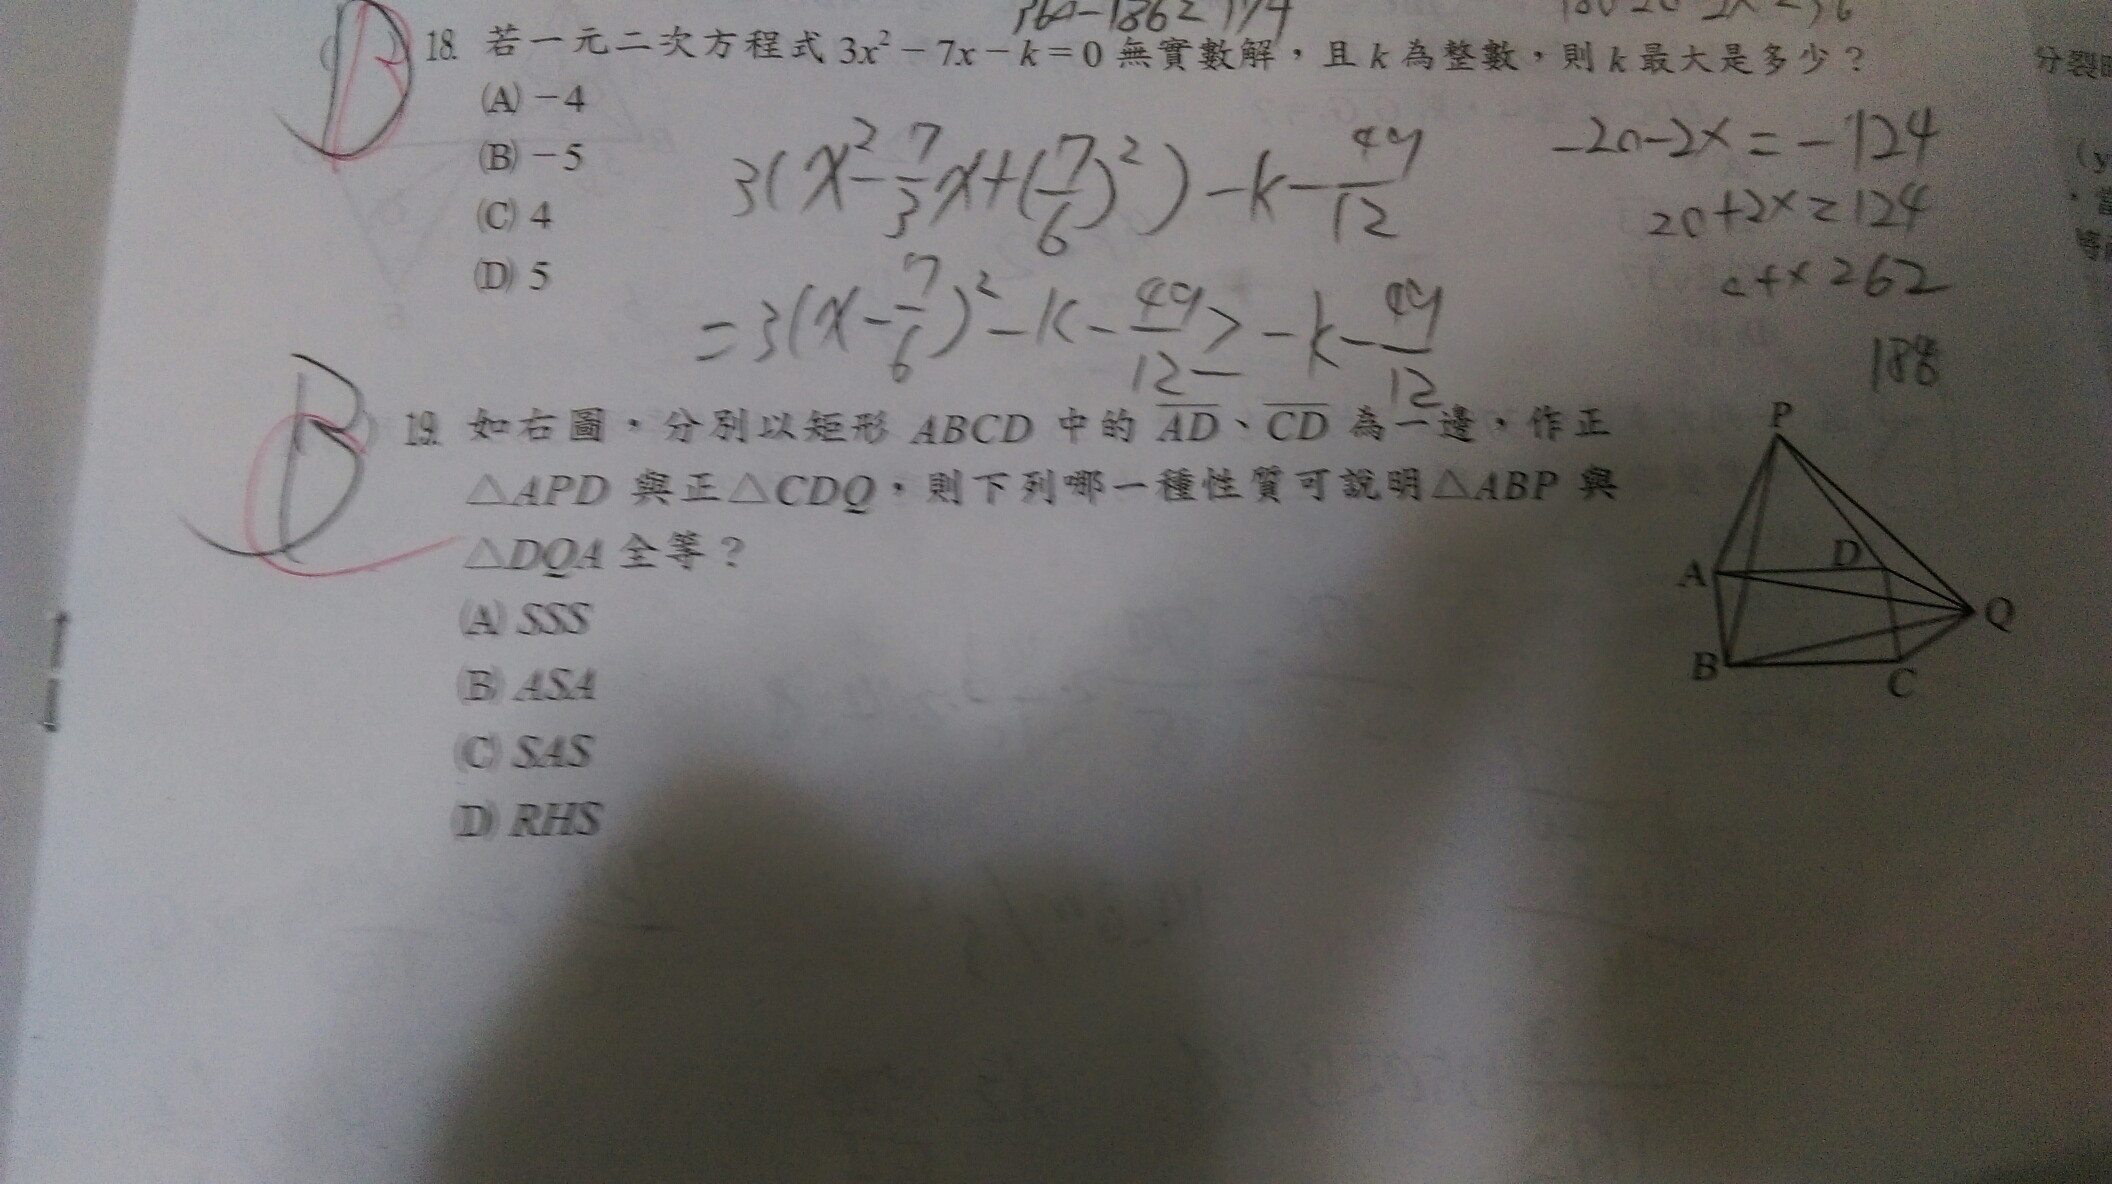 360-186=174
18. 若一元二次方程式 3x²－7x－k＝0 無實數解，且 k 為整數，則 k 最大是多少？
(A) －4
(B) －5
(C) 4
(D) 5
3(x²-7/3x+(7/6)²)-k-49/12
=3(x-7/6)²-k-49/12≥-k-49/12
-20-2x=-124
20+2x=124
188
B
19. 如右圖，分別以矩形 ABCD 中的 AD、CD 為一邊，作正
△APD 與正△CDQ，則下列哪一種性質可說明△ABP 與
△DQA 全等？
(A) SSS
(B) ASA
(C) SAS
(D) RHS
P
A
D
Q
B
C
分裂